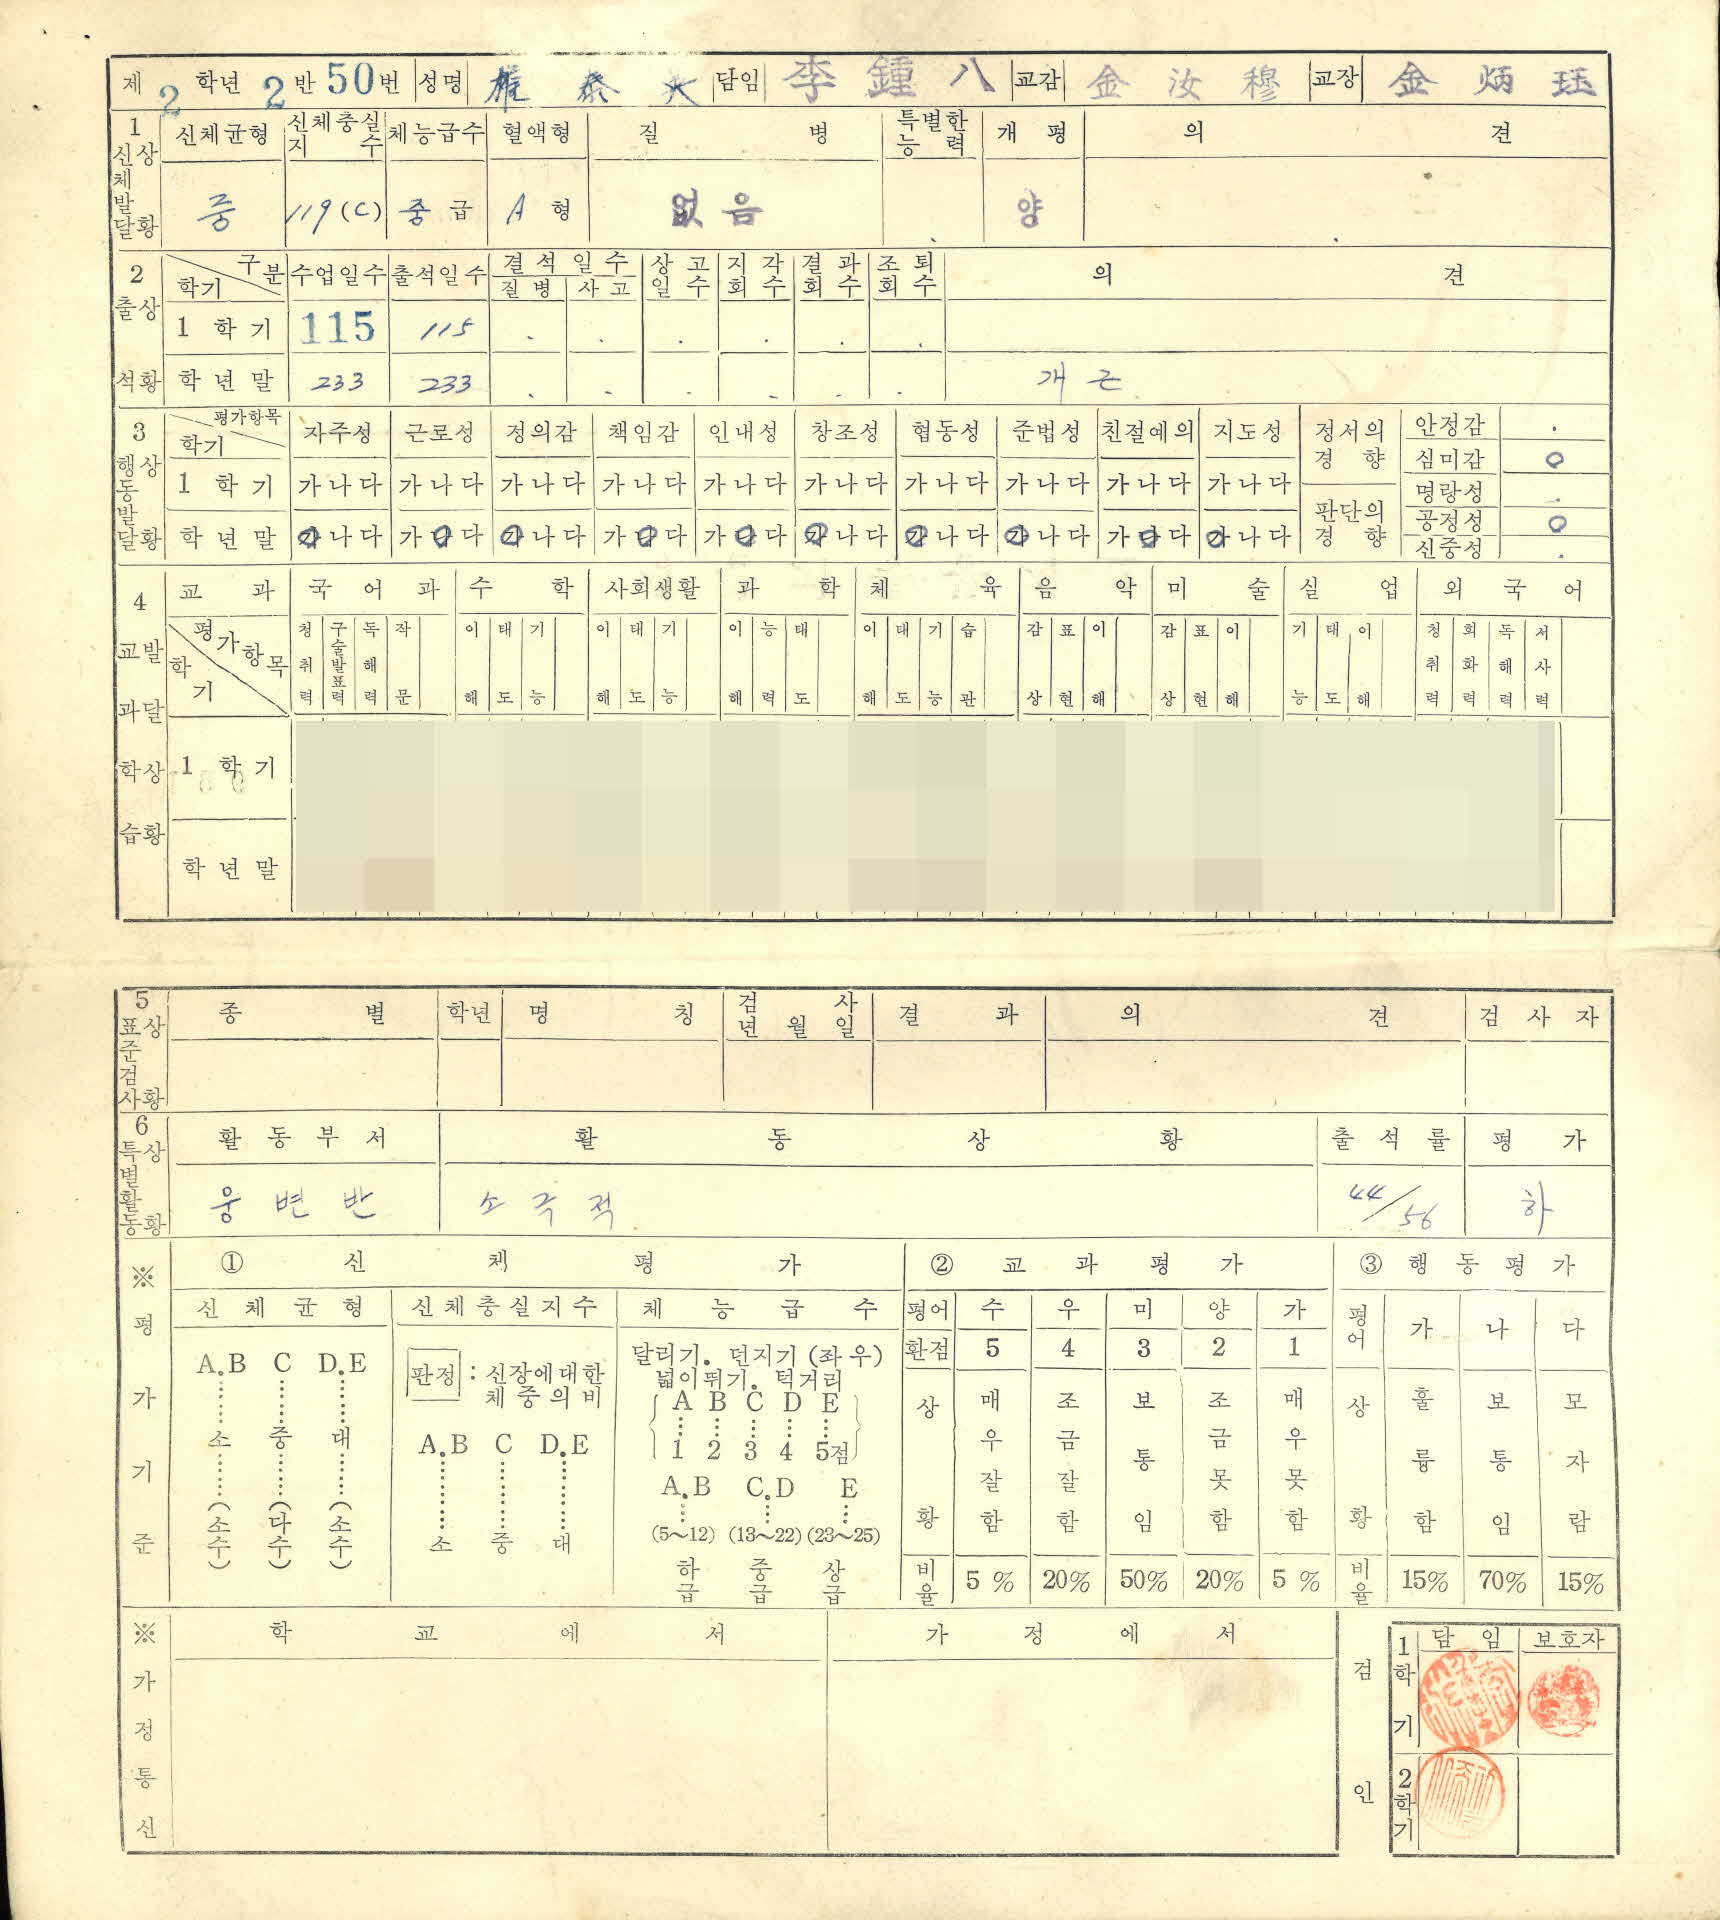 제 2 학년 2 반 50 번 성명 泰 담임 李鍾八 교감 金汝穆 교장 金炳珏
1 신체발달상황 신체균형 신체충실지수 체능급수 혈액형 질병 특별한능력 개평 의견
중 119(C) 중급 A형 없음 양
2 출석상황 구분 학기 수업일수 출석일수 결석일수 질병 사고 상고일수 지각회수 결과회수 조퇴회수 의견
1학기 115 115
학년말 233 233 개근
3 행동발달상황 평가항목 학기 자주성 근로성 정의감 책임감 인내성 창조성 협동성 준법성 친절예의 지도성 정서의경향 안정감
심미감 O
1학기 가나다 가나다 가나다 가나다 가나다 가나다 가나다 가나다 가나다 가나다 명랑성
판단의경향 공정성 O
학년말 가나다 가나다 가나다 가나다 가나다 가나다 가나다 가나다 가나다 가나다 신중성
4 교과학습발달상황 교과 국어과 수학 사회생활 과학 체육 음악 미술 실업 외국어
평가항목 학기 청취력 구술발표력 독해력 작문 이해 태도 기능 이해 태도 기능 이해 능력 태도 이해 태도 기능 습관 감상 표현 이해 감상 표현 이해 기능 태도 이해 청취력 회화력 독해력 서사력
1학기
학년말
5 표준검사상황 종별 학년 명칭 검사년월일 결과 의견 검사자
6 특별활동상황 활동부서 활동상황 출석률 평가
웅변반 소극적 44/56 하
※ 평가기준 ① 신체평가 ② 교과평가 ③ 행동평가
신체균형 신체충실지수 체능급수 평어 수 우 미 양 가 평어 가 나 다
환점 5 4 3 2 1
A.B C D.E
소 중 대
(소수) (다수) (소수)
판정 : 신장에대한
체중의비
A.B C D.E
소 중 대
달리기. 던지기 (좌우)
넓이뛰기. 턱거리
A B C D E
1 2 3 4 5점
A.B C.D E
(5~12) (13~22) (23~25)
하급 중급 상급
상황 매우잘함 조금잘함 보통임 조금못함 매우못함 상황 훌륭함 보통임 모자람
비율 5% 20% 50% 20% 5% 비율 15% 70% 15%
※ 가정통신 학교에서 가정에서 검인
담임 보호자
1학기
2학기